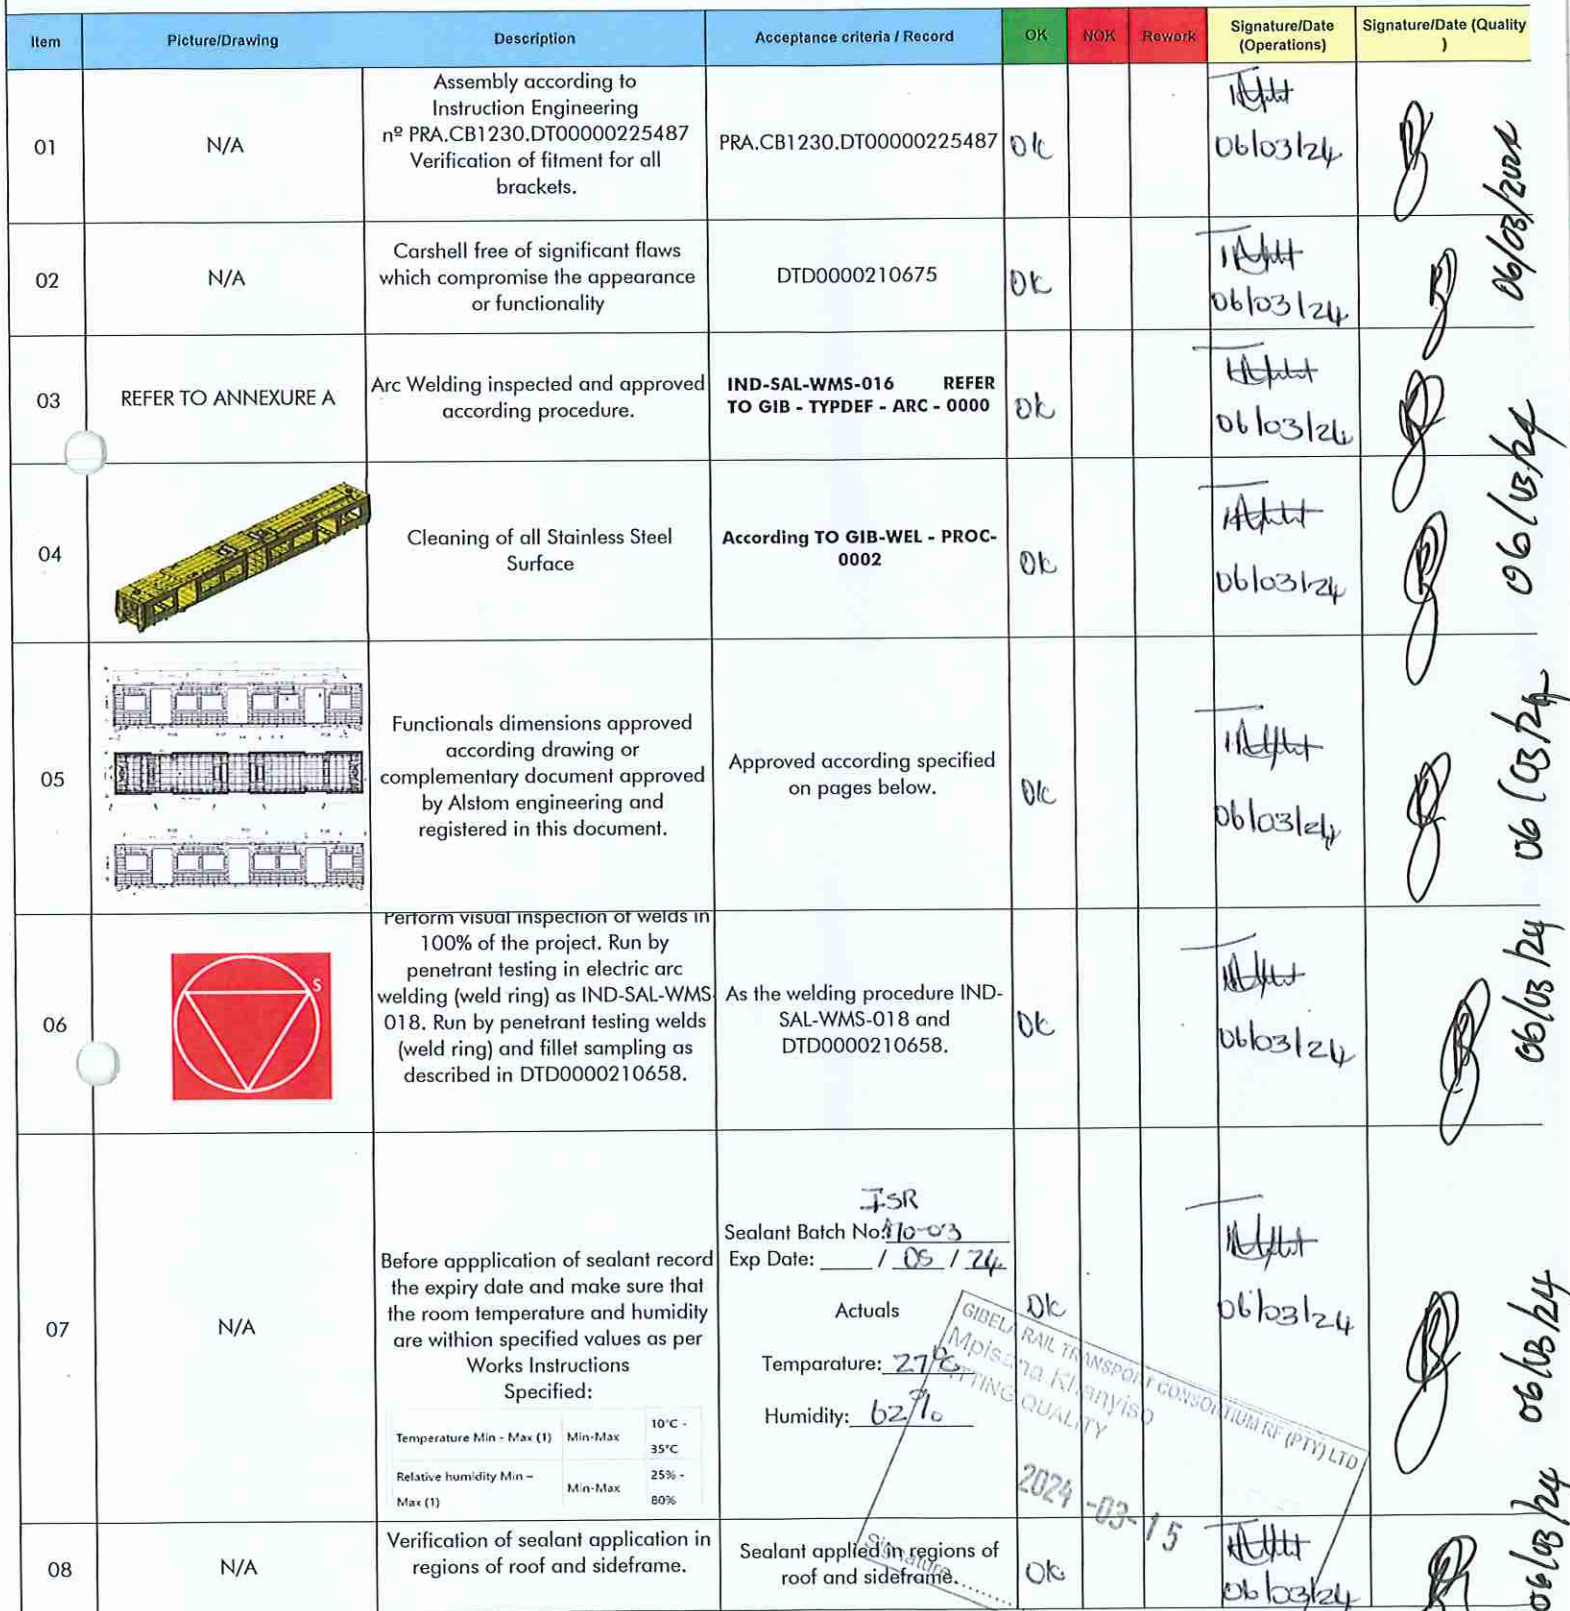 Item Picture/Drawing Description Acceptance criteria / Record OK NOK Rework Signature/Date (Operations) Signature/Date (Quality )
01
N/A
Assembly according to
Instruction Engineering
nº PRA.CB1230.DT00000225487
Verification of fitment for all
brackets.
PRA.CB1230.DT00000225487
Ok
06/03/24
02
N/A
Carshell free of significant flaws
which compromise the appearance
or functionality
DTD0000210675
Ok
06/03/24
03
REFER TO ANNEXURE A
Arc Welding inspected and approved
according procedure.
IND-SAL-WMS-016 REFER
TO GIB - TYPDEF - ARC - 0000
Ok
06/03/24
06/03/24
04
Cleaning of all Stainless Steel
Surface
According TO GIB-WEL - PROC-
0002
Ok
06/03/24
05
Functionals dimensions approved
according drawing or
complementary document approved
by Alstom engineering and
registered in this document.
Approved according specified
on pages below.
Ok
06/03/24
06/03/24
06
S
Perform visual inspection of welds in
100% of the project. Run by
penetrant testing in electric arc
welding (weld ring) as IND-SAL-WMS-
018. Run by penetrant testing welds
(weld ring) and fillet sampling as
described in DTD0000210658.
As the welding procedure IND-
SAL-WMS-018 and
DTD0000210658.
Ok
06/03/24
06/03/24
07
N/A
Before appplication of sealant record
the expiry date and make sure that
the room temperature and humidity
are withion specified values as per
Works Instructions
Specified:
Temperature Min - Max (1) Min-Max 10°C -
35°C
Relative humidity Min –
Max (1)
Min-Max
25% -
80%
ISR
Sealant Batch No:
Exp Date: ____ / 05 / 24
Actuals
Temparature: 27°C
Humidity: 62%
Ok
06/03/24
06/03/24
GIBELA RAIL TRANSPORT CONSORTIUM RF (PTY) LTD
Mpisana Khanyiso
FITTING QUALITY
2024 -03- 15
Signature............
08
N/A
Verification of sealant application in
regions of roof and sideframe.
Sealant applied in regions of
roof and sideframe.
Ok
06/03/24
06/03/24